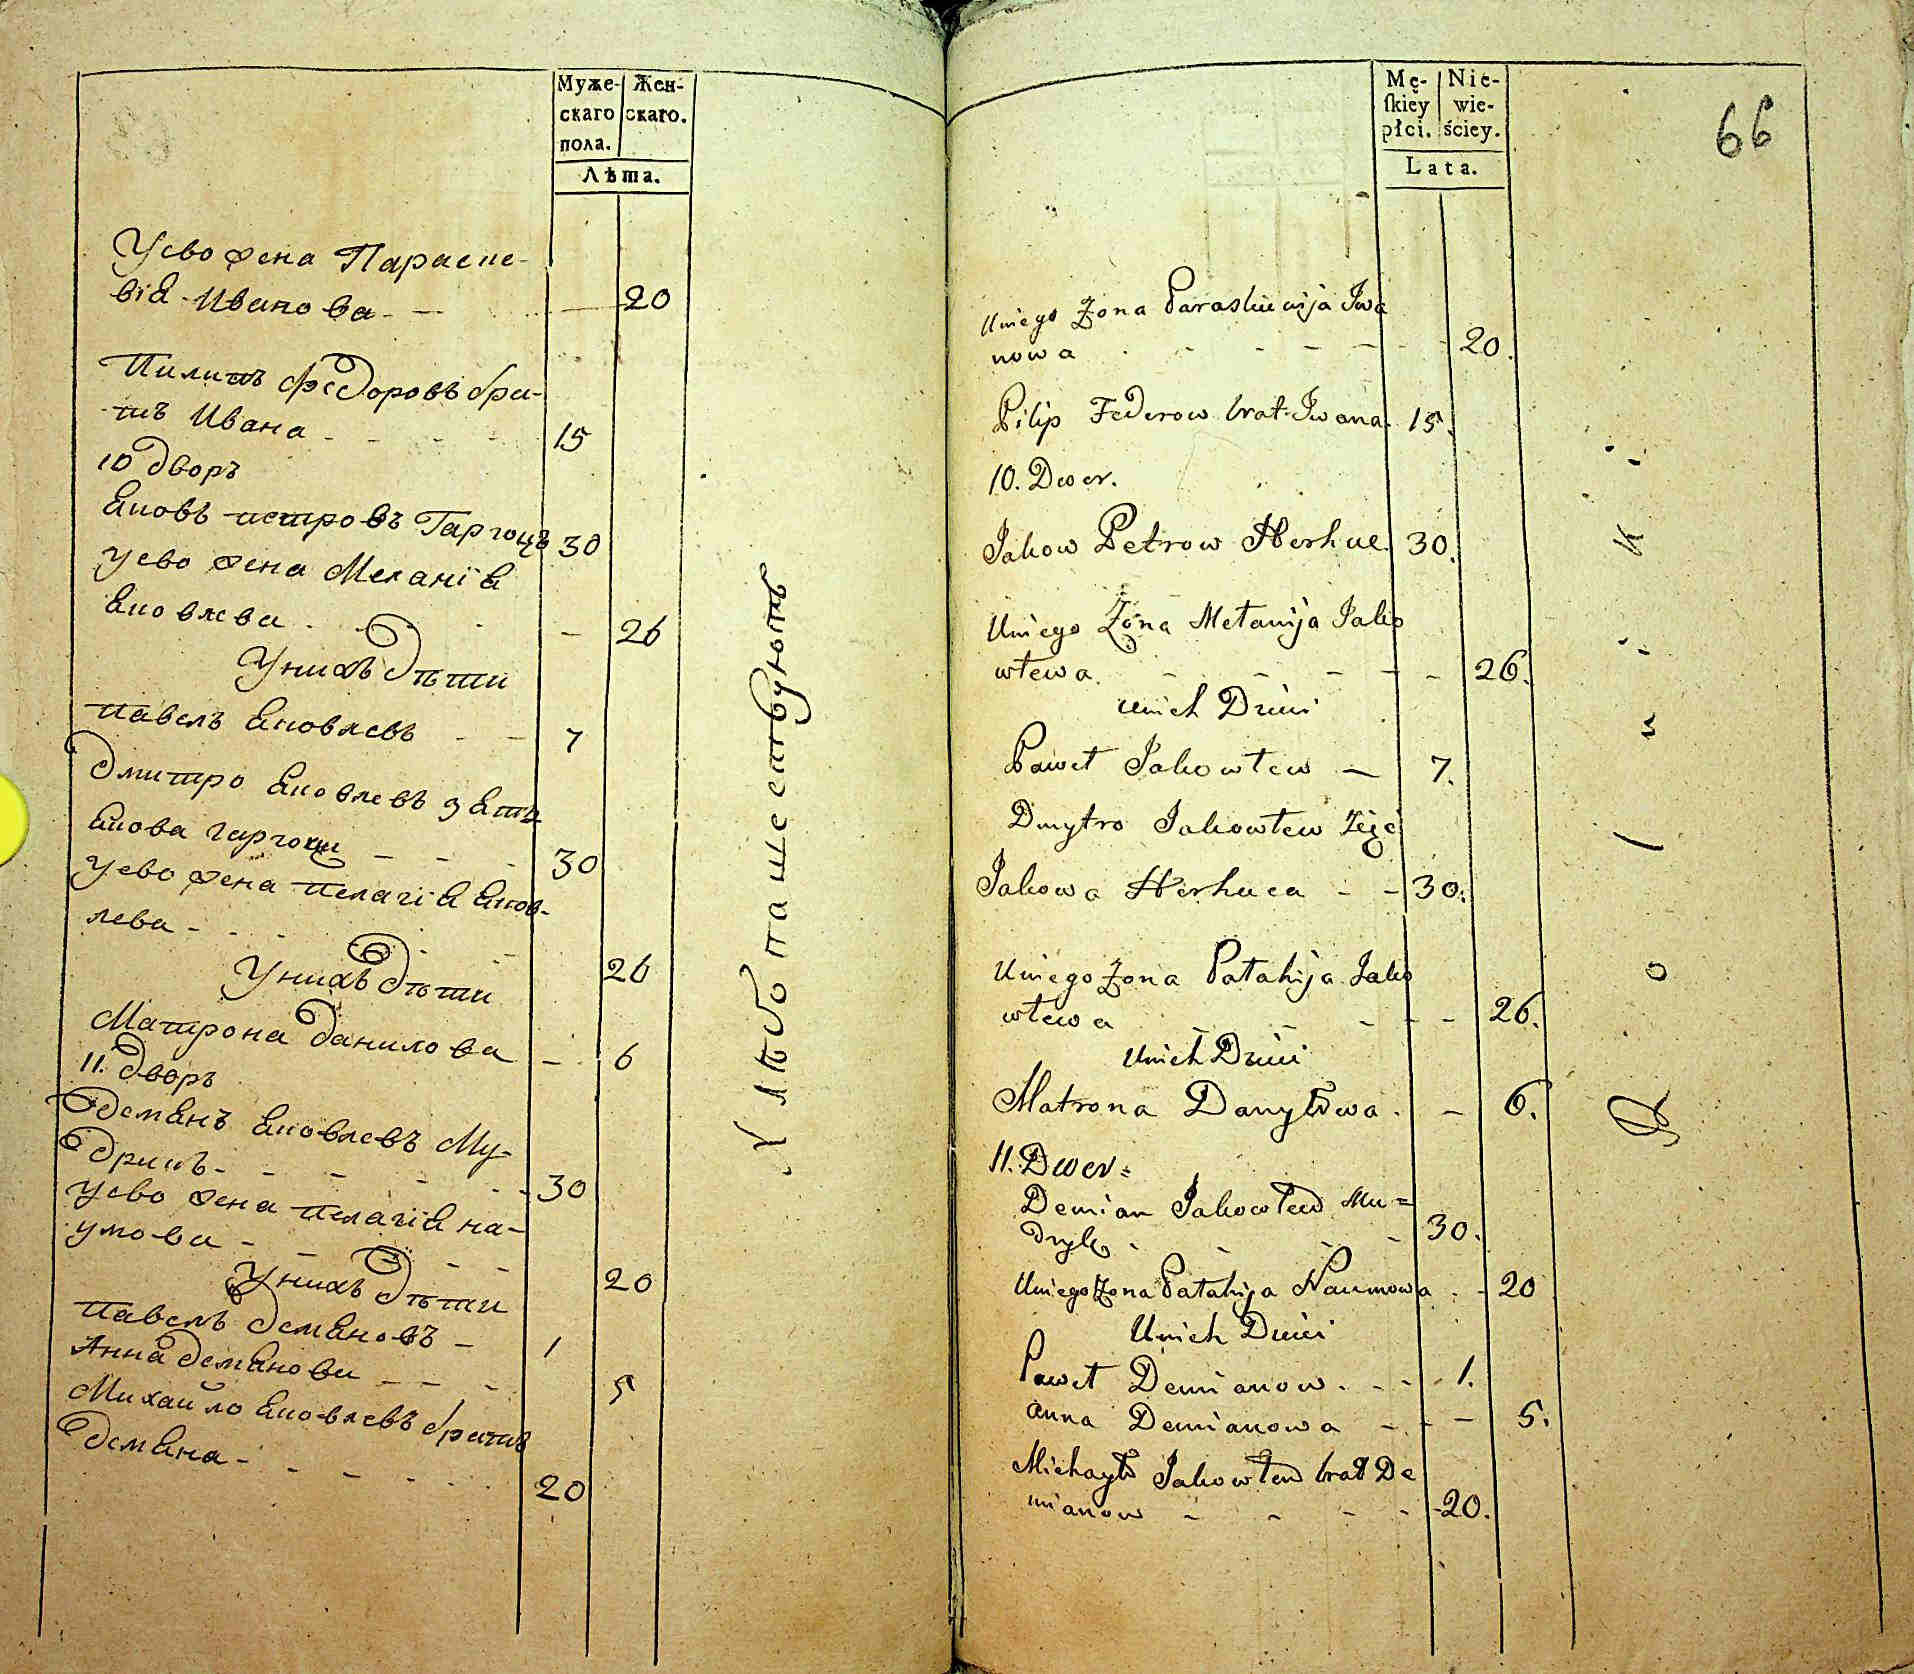 Муже-
скаго
пола.
Жен-
скаго.
Лѣта.
Уево жена Параске-
віѧ Иванова - - 20
Пилипъ Федоровъ бра-
тъ Ивана - - - 15
10 дворъ
Яковъ петровъ Гаргоцъ 30
Уево жена Меланіѧ
Яковлева - - 26
Унихъ дѣти
павелъ Яковлевъ - - 7
Дмитро Яковлевъ зѧть
Якова гаргоци - - - 30
Уево жена пелагіѧ Яков-
лева - - - 26
Унихъ дѣти
Матрона данилова - 6
11. дворъ
демѧнъ Яковлевъ Му-
дрикъ - - - - 30
Уево жена пелагіѧ на-
умова - - - - 20
Унихъ дѣти
павелъ демѧновъ - 1
Анна демѧнова - - - 5
Михайло Яковлевъ братъ
демѧна - - - - 20
Хлѣбопашествуютъ
Mę-
ſkiey
płci.
Nie-
wie-
ściey.
Lata.
66
Uniego Zona Paraskiewija Iwa
nowa - - - - - 20.
Pilip Federow brat Iwana. 15.
10. Dwor.
Jakow Petrow Herhuc 30.
Uniego Zona Mełanija Jako
włewa. - - - - - 26.
Unich Dzieci
Paweł Jakowłew - 7.
Dmytro Jakowłew Zięć
Jakowa Herhuca - - 30.
Uniego Zona Pałahija Jako
włewa - - - - - 26.
Unich Dzieci
Matrona Danyłowa. - 6.
11. Dwor=
Demian Jakowłew Mu=
dryk - - - - 30.
Uniego Zona Pałahija Naumowa . - 20
Unich Dzieci
Paweł Demianow. - - - 1.
Anna Demianowa - - - 5.
Michayło Jakowłew brat De
mianow - - - - - 20.